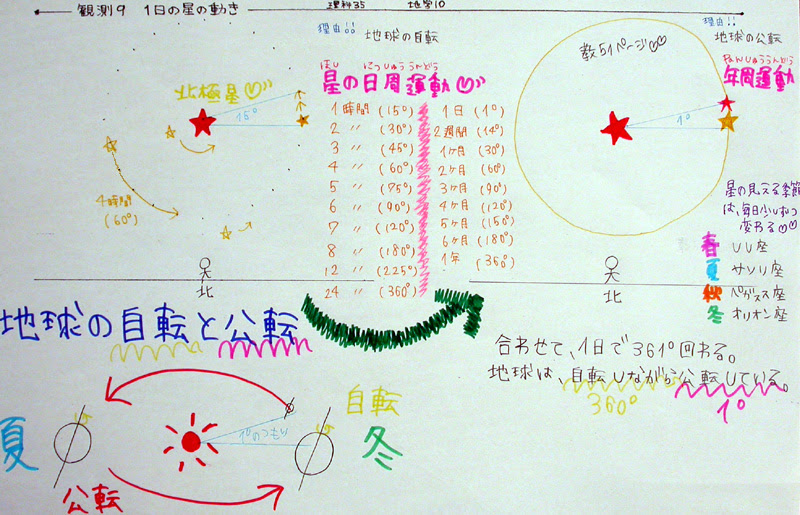 観測9 1日の星の動き
理科35 地学10
理由!! 地球の自転
ほし にっしゅううんどう
星の日周運動
北極星
15°
4時間
(60°)
北
1時間 (15°)
2 〃 (30°)
3 〃 (45°)
4 〃 (60°)
5 〃 (75°)
6 〃 (90°)
7 〃 (120°)
8 〃 (180°)
12 〃 (225°)
24 〃 (360°)
1日 (1°)
2週間 (14°)
1ヶ月 (30°)
2ヶ月 (60°)
3ヶ月 (90°)
4ヶ月 (120°)
5ヶ月 (150°)
6ヶ月 (180°)
1年 (360°)
教51ページ
理由!!
地球の公転
ねんしゅううんどう
年周運動
1°
北
星の見える季節
は、毎日少しずつ
変わる
春 しし座
夏 サソリ座
秋 ペガスス座
冬 オリオン座
地球の自転と公転
合わせて、1日で361°回わる。
地球は、自転しながら公転している。
360° 1°
夏
1°のつもり
自転
冬
公転